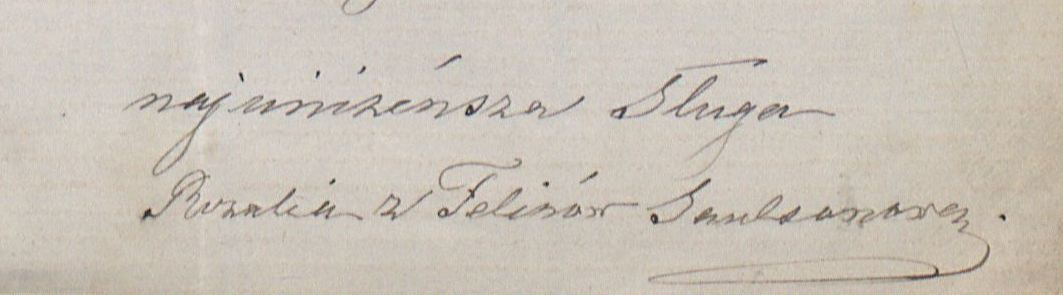 najuniżeńsza Sługa
Rozalia z Felixów Saulsonowa.